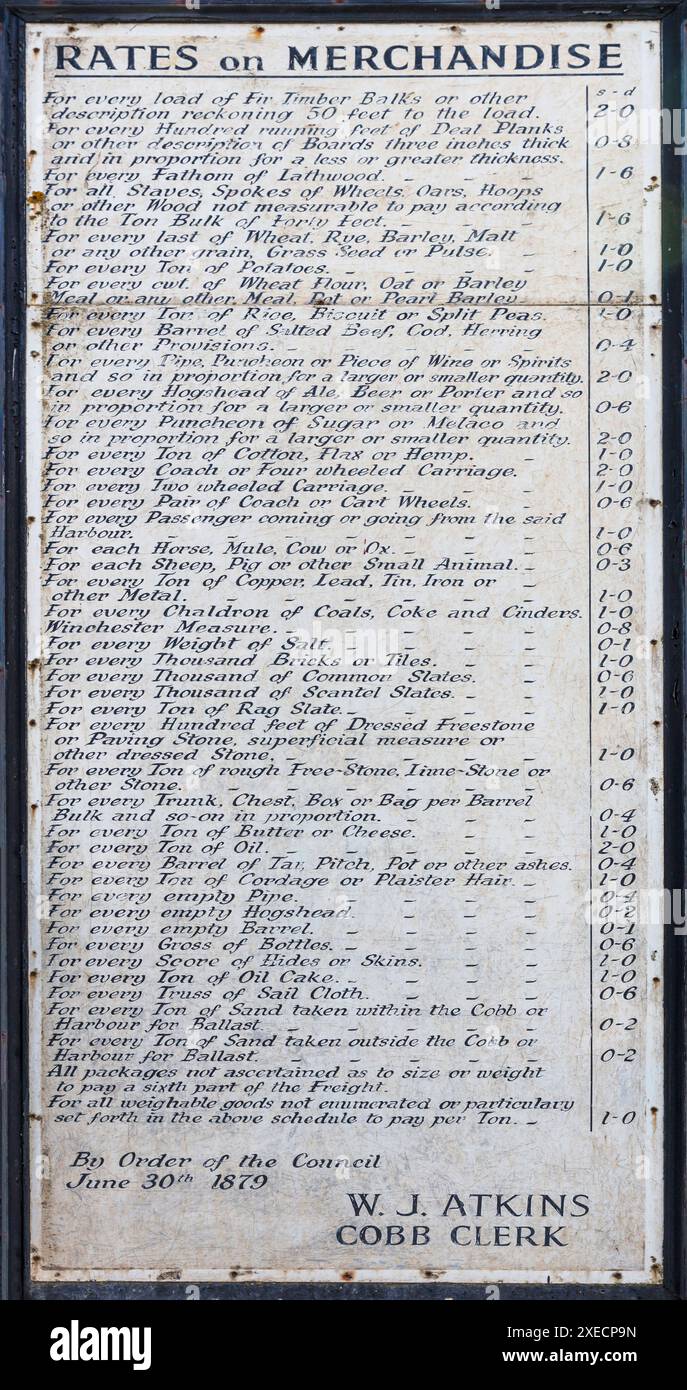 RATES on MERCHANDISE
s - d
For every load of Fir Timber Balks or other
description reckoning 50 feet to the load. 2-0
For every Hundred running feet of Deal Planks
or other description of Boards three inches thick 0-8
and in proportion for a less or greater thickness.
For every Fathom of Lathwood. - - - 1-6
For all, Staves, Spokes of Wheels, Oars, Hoops
or other Wood not measurable to pay according
to the Ton Bulk of Forty Feet. - - - 1-6
For every last of Wheat, Rye, Barley, Malt
or any other grain, Grass Seed or Pulse. - 1-0
For every Ton of Potatoes. - - - - 1-0
For every cwt. of Wheat Flour, Oat or Barley
Meal or any other Meal, Pot or Pearl Barley - 0-1
For every Ton of Rice, Biscuit or Split Peas. 1-0
For every Barrel of Salted Beef, Cod, Herring
or other Provisions. - - - - - 0-4
For every Pipe, Puncheon or Piece of Wine or Spirits
and so in proportion for a larger or smaller quantity. 2-0
For every Hogshead of Ale, Beer or Porter and so
in proportion for a larger or smaller quantity. 0-6
For every Puncheon of Sugar or Melaco and
so in proportion for a larger or smaller quantity. 2-0
For every Ton of Cotton, Flax or Hemp. - 1-0
For every Coach or Four wheeled Carriage. 2-0
For every Two wheeled Carriage. - - - 1-0
For every Pair of Coach or Cart Wheels. - 0-6
For every Passenger coming or going from the said
Harbour. - - - - - - - 1-0
For each Horse, Mule, Cow or Ox. - - - 0-6
For each Sheep, Pig or other Small Animal. - 0-3
For every Ton of Copper, Lead, Tin, Iron or -
other Metal. - - - - - - 1-0
For every Chaldron of Coals, Coke and Cinders. 1-0
Winchester Measure. - - - - - 0-8
For every Weight of Salt. - - - - 0-1
For every Thousand Bricks or Tiles. - - 1-0
For every Thousand of Common Slates. - 0-6
For every Thousand of Scantel Slates. - - 1-0
For every Ton of Rag Slate. - - - - 1-0
For every Hundred feet of Dressed Freestone
or Paving Stone, superficial measure or
other dressed Stone. - - - - - 1-0
For every Ton of rough Free-Stone, Lime-Stone or
other Stone. - - - - - - 0-6
For every Trunk, Chest, Box or Bag per Barrel
Bulk and so-on in proportion. - - - 0-4
For every Ton of Butter or Cheese. - - 1-0
For every Ton of Oil. - - - - - 2-0
For every Barrel of Tar, Pitch, Pot or other ashes. 0-4
For every Ton of Cordage or Plaister Hair. - 1-0
For every empty Pipe. - - - - 0-4
For every empty Hogshead. - - - 0-2
For every empty Barrel. - - - - 0-1
For every Gross of Bottles. - - - - 0-6
For every Score of Hides or Skins. - - 1-0
For every Ton of Oil Cake. - - - - 1-0
For every Truss of Sail Cloth. - - - 0-6
For every Ton of Sand taken within the Cobb or
Harbour for Ballast. - - - - - 0-2
For every Ton of Sand taken outside the Cobb or
Harbour for Ballast. - - - - - 0-2
All packages not ascertained as to size or weight
to pay a sixth part of the Freight.
For all weighable goods not enumerated or particulary
set forth in the above schedule to pay per Ton. - 1-0
By Order of the Council
June 30th 1879
W. J. ATKINS
COBB CLERK
alamy
Image ID: 2XECP9N
www.alamy.com